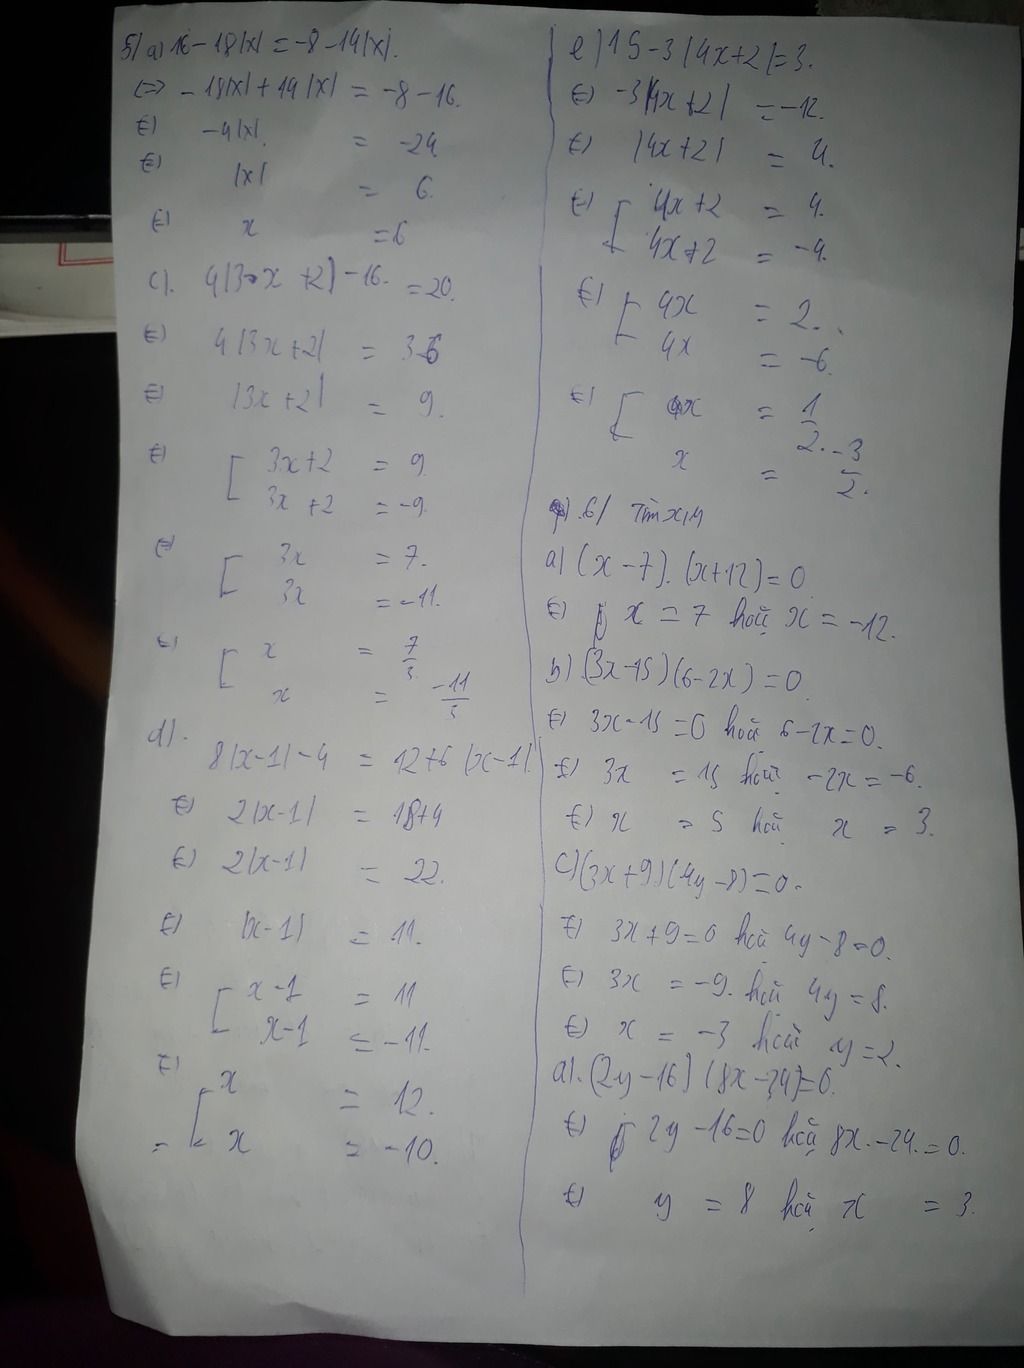 5/ a) 16 - 18|x| = -8 - 14|x|.
<=> - 18|x| + 14|x| = -8 - 16.
<=> -4|x|. = -24
<=> |x| = 6
<=> x = 6
c). 4|3x + 2| - 16. = 20.
<=> 4|3x + 2| = 36
<=> |3x + 2| = 9.
<=> [ 3x + 2 = 9
3x + 2 = -9.
<=> [ 3x = 7.
3x = -11.
<=> [ x = 7/3.
x = -11/3
d).
8|x-1| - 4 = 12 + 6|x-1|.
<=> 2|x-1| = 18+4
<=> 2|x-1| = 22.
<=> |x-1| = 11.
<=> [ x - 1 = 11
x - 1 = -11.
<=> [ x = 12.
x = -10.
e) 15 - 3|4x+2| = 3.
<=> -3|4x+2| = -12.
<=> |4x+2| = 4.
<=> [ 4x+2 = 4.
4x+2 = -4.
<=> [ 4x = 2.
4x = -6.
<=> [ x = 1/2.
x = -3/2.
6/ Tìm x,y
a) (x-7). (x+12) = 0
<=> x = 7 hoặc x = -12.
b) (3x-15)(6-2x) = 0.
<=> 3x-15 = 0 hoặc 6-2x = 0.
<=> 3x = 15 hoặc -2x = -6.
<=> x = 5 hoặc x = 3.
c) (3x+9)(4y-8) = 0.
<=> 3x+9 = 0 hoặc 4y-8 = 0.
<=> 3x = -9. hoặc 4y = 8.
<=> x = -3 hoặc y = 2.
d). (2y-16)(8x-24) = 0.
<=> 2y-16 = 0 hoặc 8x.-24. = 0.
<=> y = 8 hoặc x = 3.